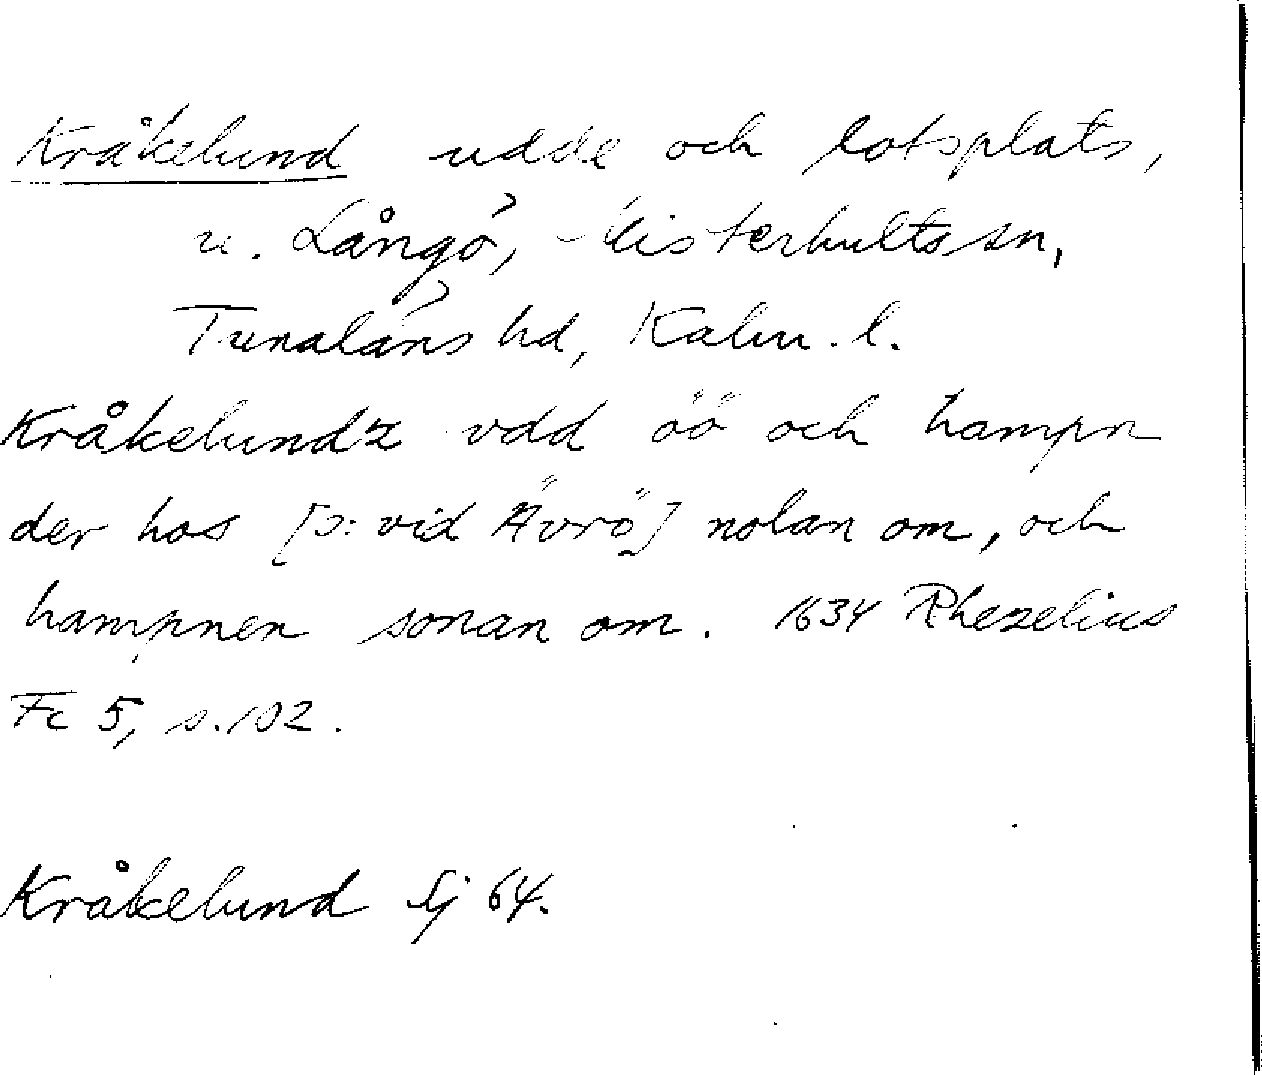 Kråkelund udde och lotsplats,
u. Långö, Misterhults sn,
Tunaläns hd, Kalm. l.
Kråkelundz vdd öö och hampn
der hos [ɔ: vid Ävrö] nolan om, och
hampnen sonan om. 1634 Rhezelius
Fc 5, s. 102.
Kråkelund Sj 64.